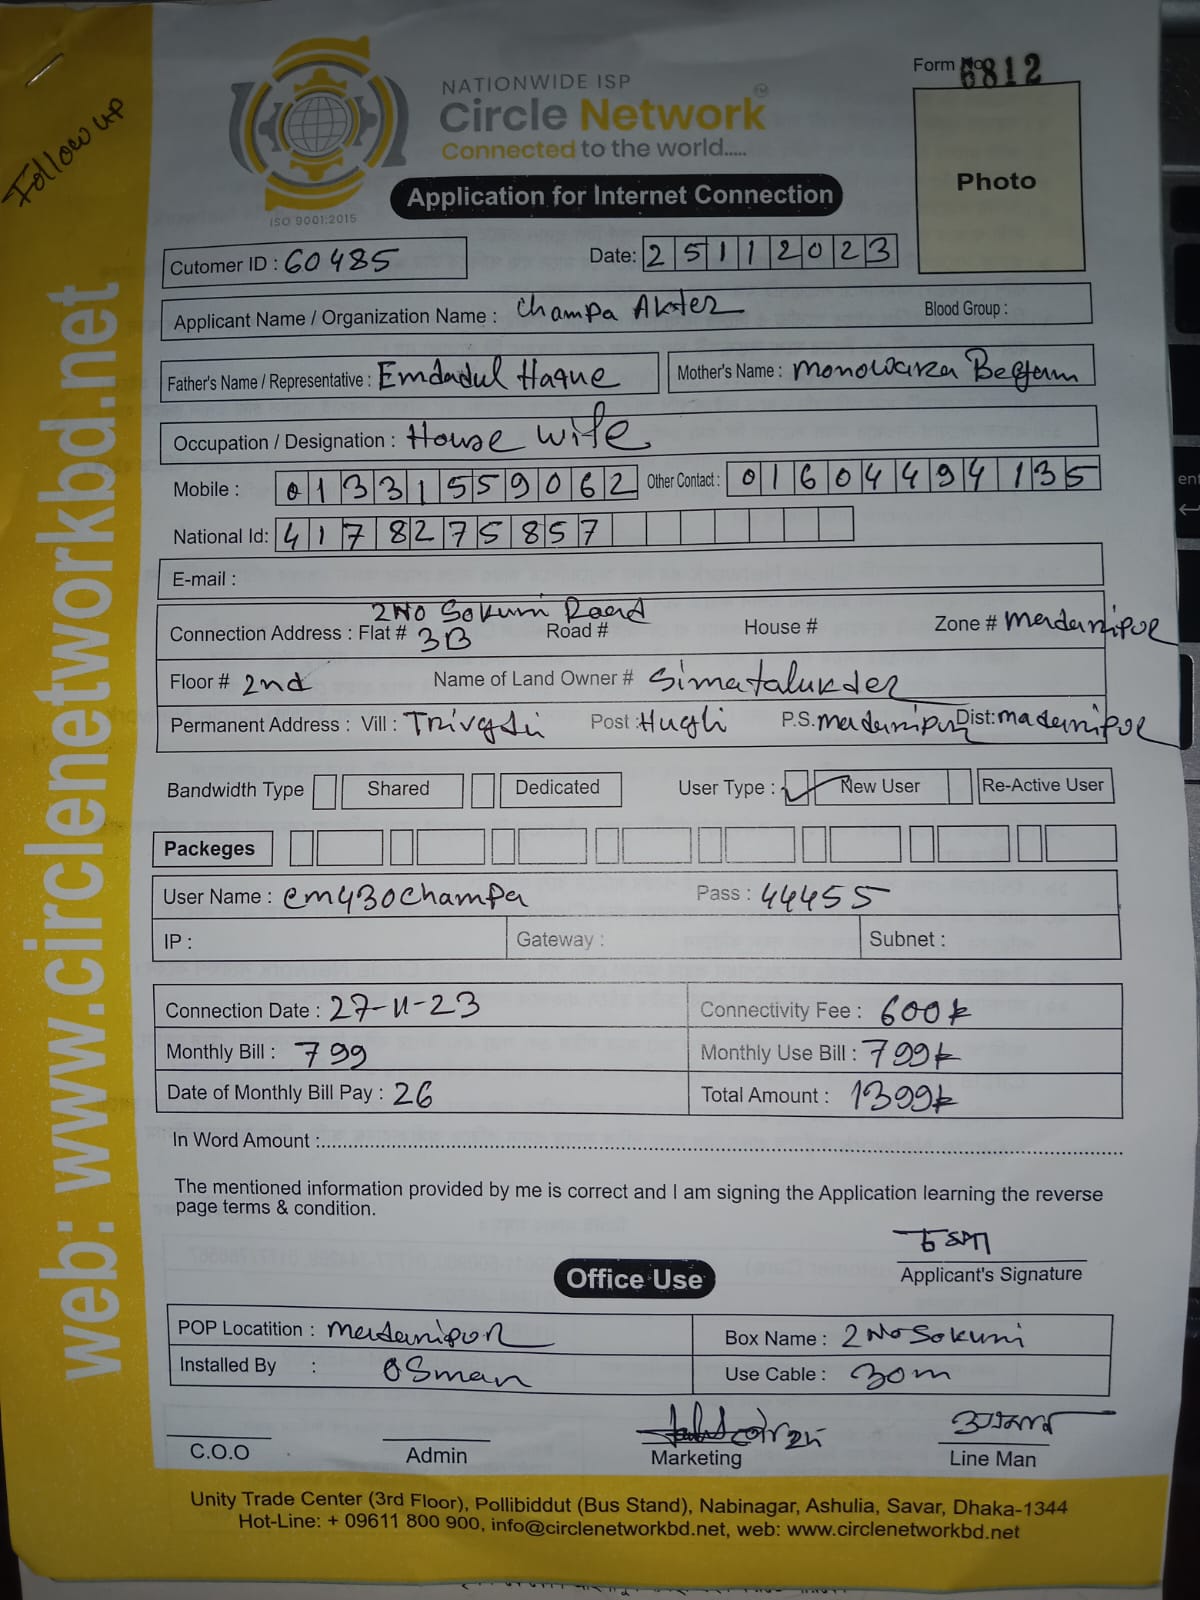 Follow up
NATIONWIDE ISP
Circle Network
TM
Connected to the world.....
ISO 9001:2015
Form No 6812
Photo
Application for Internet Connection
Cutomer ID : 60485
Date: 25112023
Applicant Name / Organization Name : Champa Akter
Blood Group :
Father's Name / Representative : Emdadul Haque
Mother's Name : monowara Begum
Occupation / Designation : House wife
Mobile : 01331559062
Other Contact : 01604494135
National Id: 4178275857
E-mail :
2 No Sokuni Road
Connection Address : Flat # 3B Road # House # Zone # Madaripur
Floor # 2nd Name of Land Owner # Sima talukder
Permanent Address : Vill : Post : Hugli P.S. madaripur Dist: madaripur
Bandwidth Type Shared Dedicated User Type : New User Re-Active User
Packeges
User Name : cm430champa Pass : 44455
IP : Gateway : Subnet :
Connection Date : 27-11-23 Connectivity Fee : 600৳
Monthly Bill : 799 Monthly Use Bill : 799৳
Date of Monthly Bill Pay : 26 Total Amount : 1399৳
In Word Amount :
The mentioned information provided by me is correct and I am signing the Application learning the reverse
page terms & condition.
চম্পা
Applicant's Signature
Office Use
POP Locatition : madaripur Box Name : 2 No Sokuni
Installed By : OSman Use Cable : 30m
C.O.O Admin Marketing Line Man
Unity Trade Center (3rd Floor), Pollibiddut (Bus Stand), Nabinagar, Ashulia, Savar, Dhaka-1344
Hot-Line: + 09611 800 900, info@circlenetworkbd.net, web: www.circlenetworkbd.net
web: www.circlenetworkbd.net